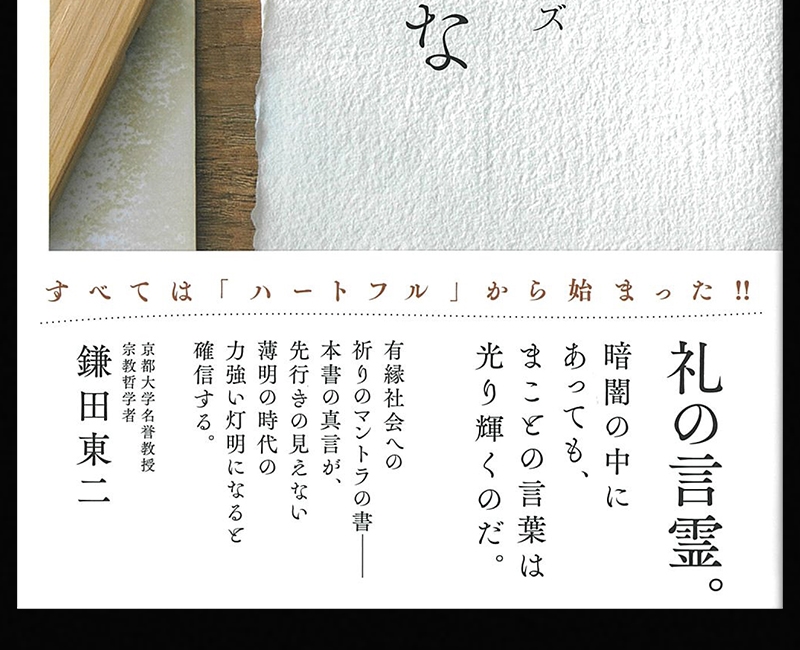 ズ
な
すべては「ハートフル」から始まった!!
礼の言霊。
暗闇の中に
あっても、
まことの言葉は
光り輝くのだ。
有縁社会への
祈りのマントラの書――
本書の真言が、
先行きの見えない
薄明の時代の
力強い灯明になると
確信する。
京都大学名誉教授
宗教哲学者
鎌田東二